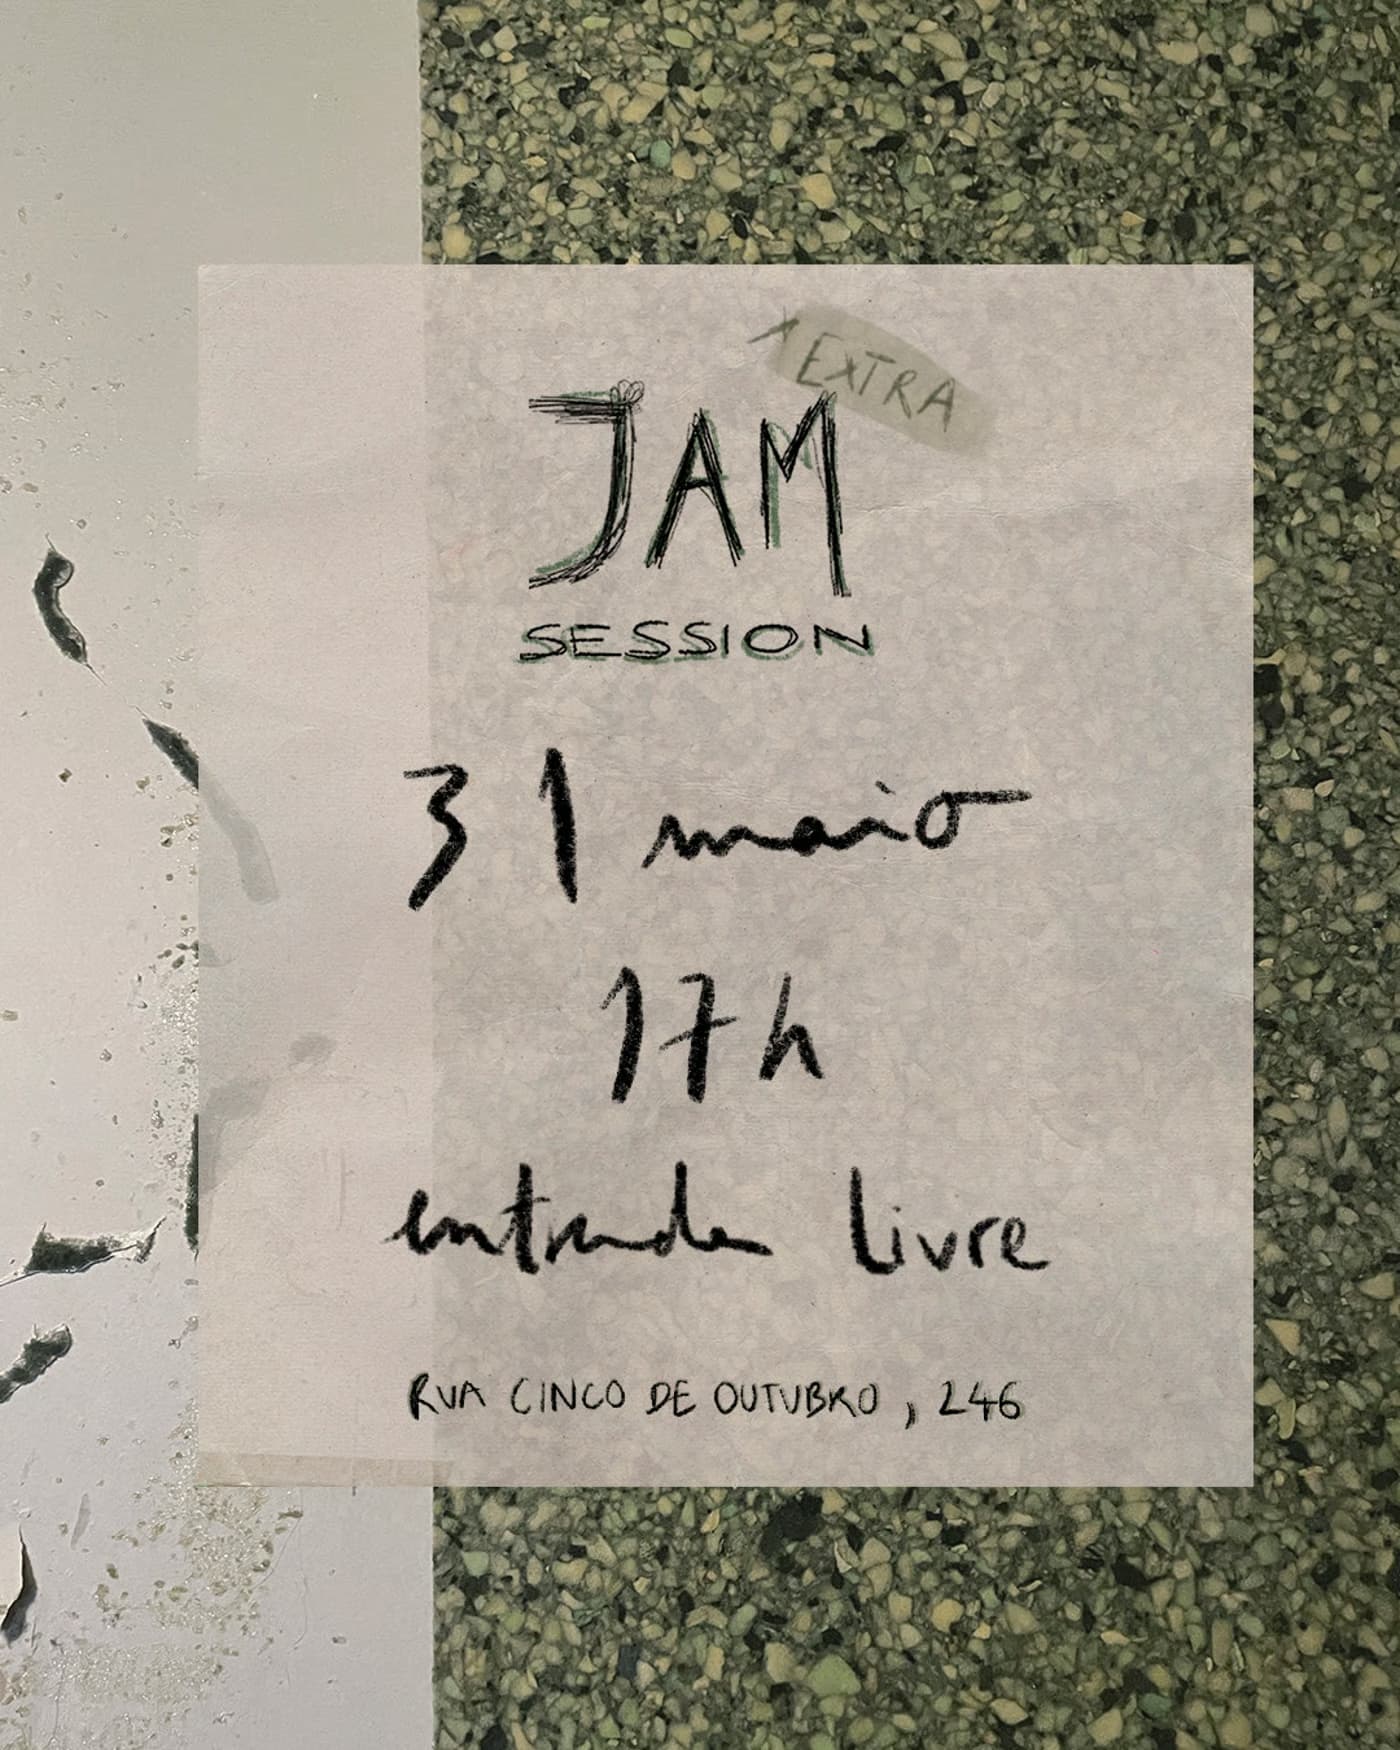 EXTRA
JAM
SESSION
31 maio
17h
entrada livre
RUA CINCO DE OUTUBRO, 246